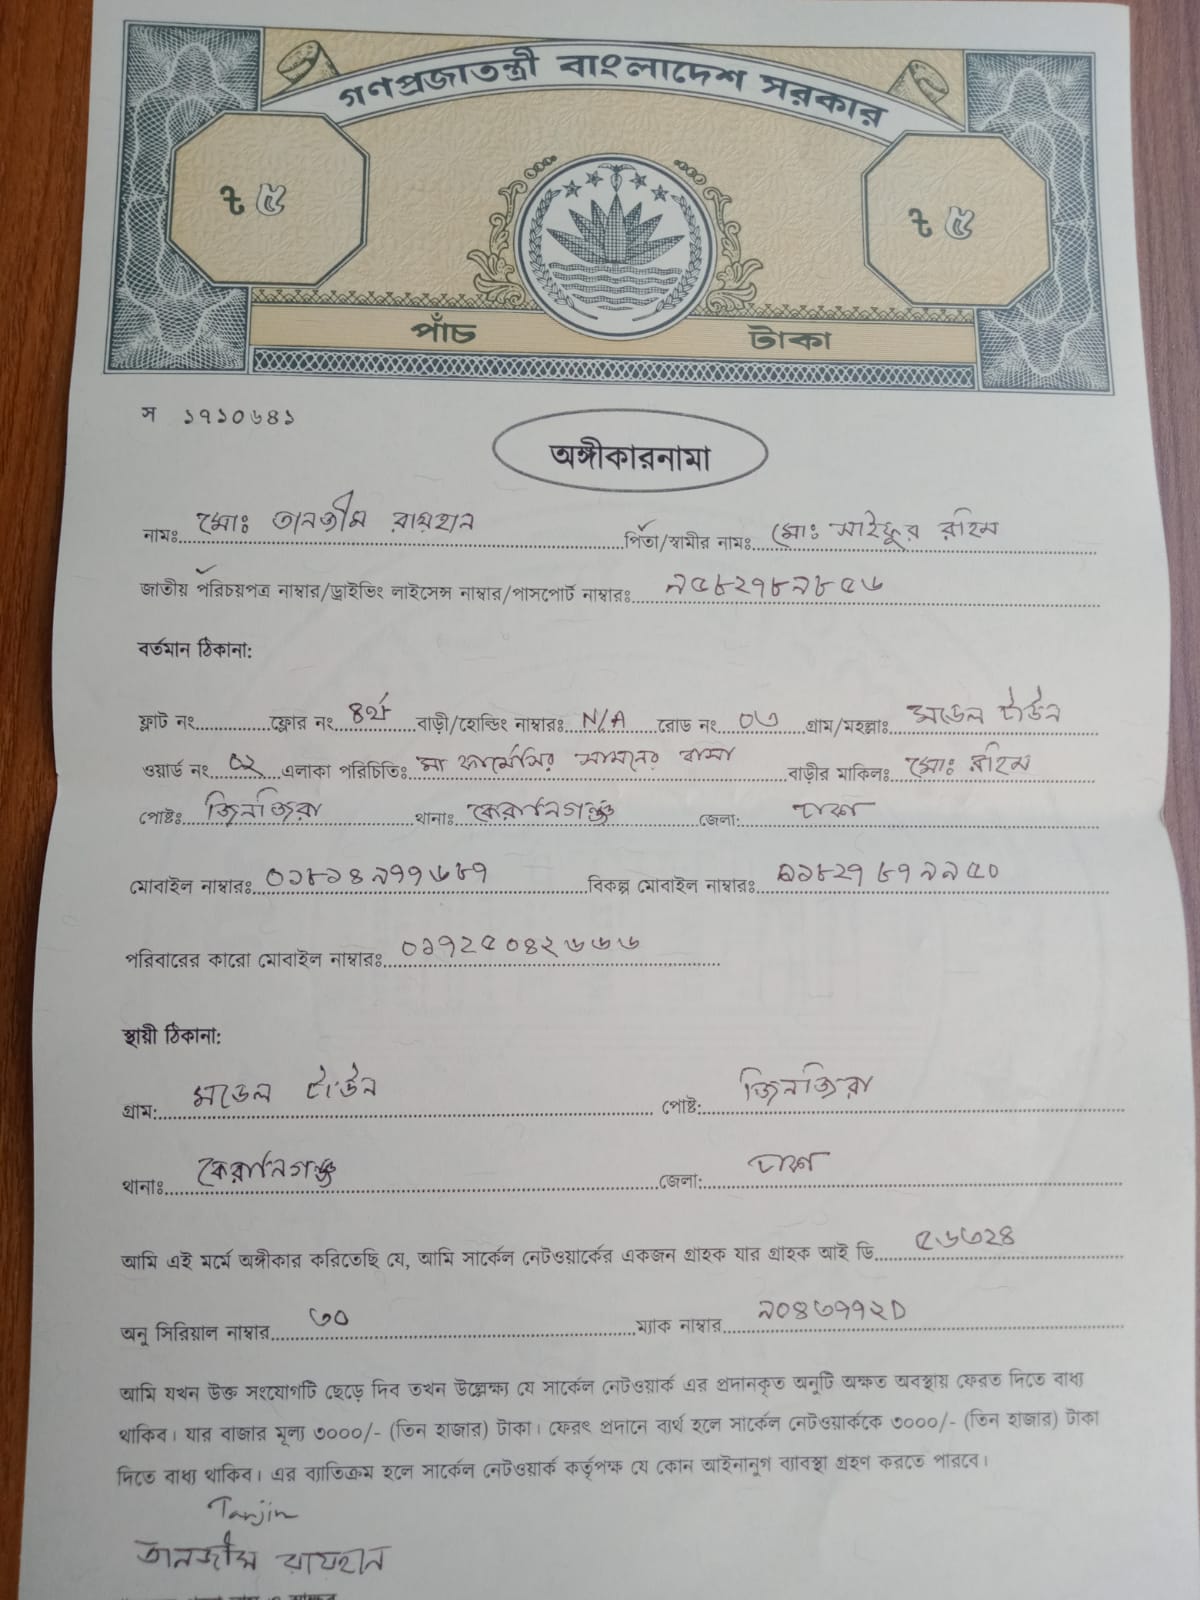 গণপ্রজাতন্ত্রী বাংলাদেশ সরকার
৳ ৫
৳ ৫
পাঁচ টাকা
স ১৭১০৬৪১
অঙ্গীকারনামা
নামঃ মোঃ তানজীম রায়হান পিতা/স্বামীর নামঃ মোঃ সাইফুর রহিম
জাতীয় পরিচয়পত্র নাম্বার/ড্রাইভিং লাইসেন্স নাম্বার/পাসপোর্ট নাম্বারঃ ৯৫৮২৭৮৯৮৫৬
বর্তমান ঠিকানা:
ফ্লাট নং ফ্লোর নং ৪র্থ বাড়ী/হোল্ডিং নাম্বারঃ N/A রোড নং ০৩ গ্রাম/মহল্লাঃ মডেল টাউন
ওয়ার্ড নং ০২ এলাকা পরিচিতিঃ মা ফার্মেসির সামনের বাসা বাড়ীর মালিকঃ মোঃ রহিম
পোষ্টঃ জিনজিরা থানাঃ কেরানিগঞ্জ জেলা: ঢাকা
মোবাইল নাম্বারঃ ০১৮১৪৯৭৭৬৮৭ বিকল্প মোবাইল নাম্বারঃ ০১৮২৭৮৭৯৯৫০
পরিবারের কারো মোবাইল নাম্বারঃ ০১৭২৫০৪২৬৬৬
স্থায়ী ঠিকানা:
গ্রাম: মডেল টাউন পোষ্ট: জিনজিরা
থানাঃ কেরানিগঞ্জ জেলা: ঢাকা
আমি এই মর্মে অঙ্গীকার করিতেছি যে, আমি সার্কেল নেটওয়ার্কের একজন গ্রাহক যার গ্রাহক আই ডি ৫৬৩২৪
অনু সিরিয়াল নাম্বার ৩০ ম্যাক নাম্বার ৯০৪৩৭৭২D
আমি যখন উক্ত সংযোগটি ছেড়ে দিব তখন উল্লেক্ষ্য যে সার্কেল নেটওয়ার্ক এর প্রদানকৃত অনুটি অক্ষত অবস্থায় ফেরত দিতে বাধ্য
থাকিব। যার বাজার মূল্য ৩০০০/- (তিন হাজার) টাকা। ফেরৎ প্রদানে ব্যর্থ হলে সার্কেল নেটওয়ার্ককে ৩০০০/- (তিন হাজার) টাকা
দিতে বাধ্য থাকিব। এর ব্যাতিক্রম হলে সার্কেল নেটওয়ার্ক কর্তৃপক্ষ যে কোন আইনানুগ ব্যাবস্থা গ্রহণ করতে পারবে।
Tanjim
তানজীম রায়হান